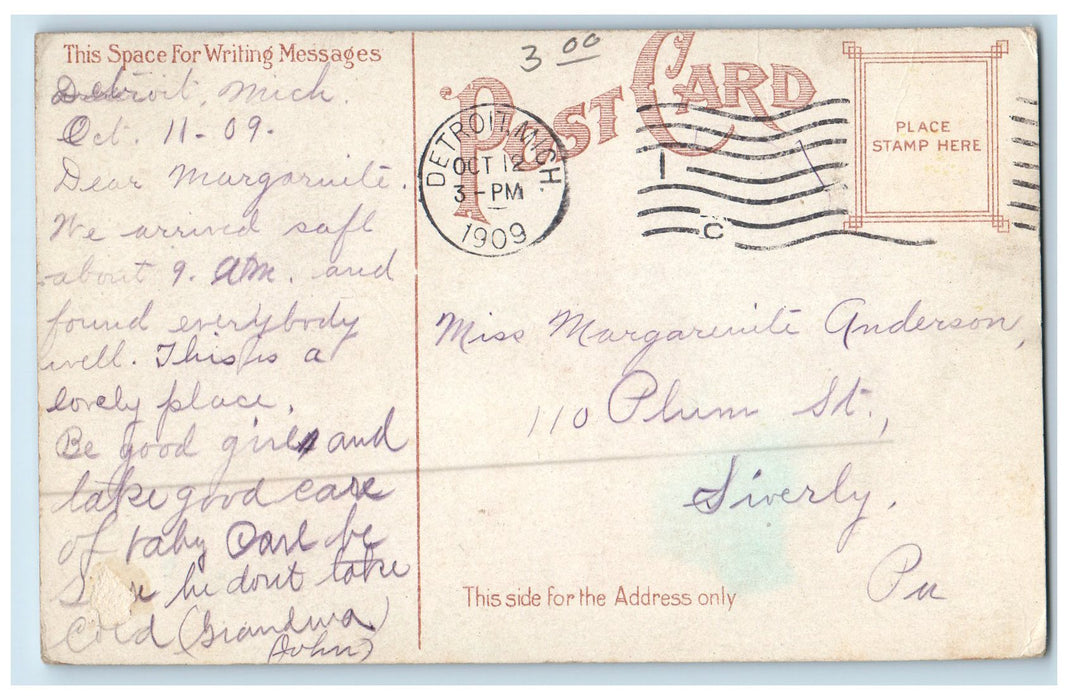 This Space For Writing Messages
Detroit, Mich.
Oct. 11-09.
Dear Margaruite.
We arrived safe
about 9. AM. and
found everybody
well. This is a
lovely place.
Be good girl and
take good care
of baby Carl be
he dont take
cold (Grandma
John)
3 00
POST CARD
DETROIT, MICH.
OCT 12
3-PM
1909
1
C
PLACE
STAMP HERE
Miss Margaruite Anderson,
110 Plum St.,
Siverly,
Pa
This side for the Address only